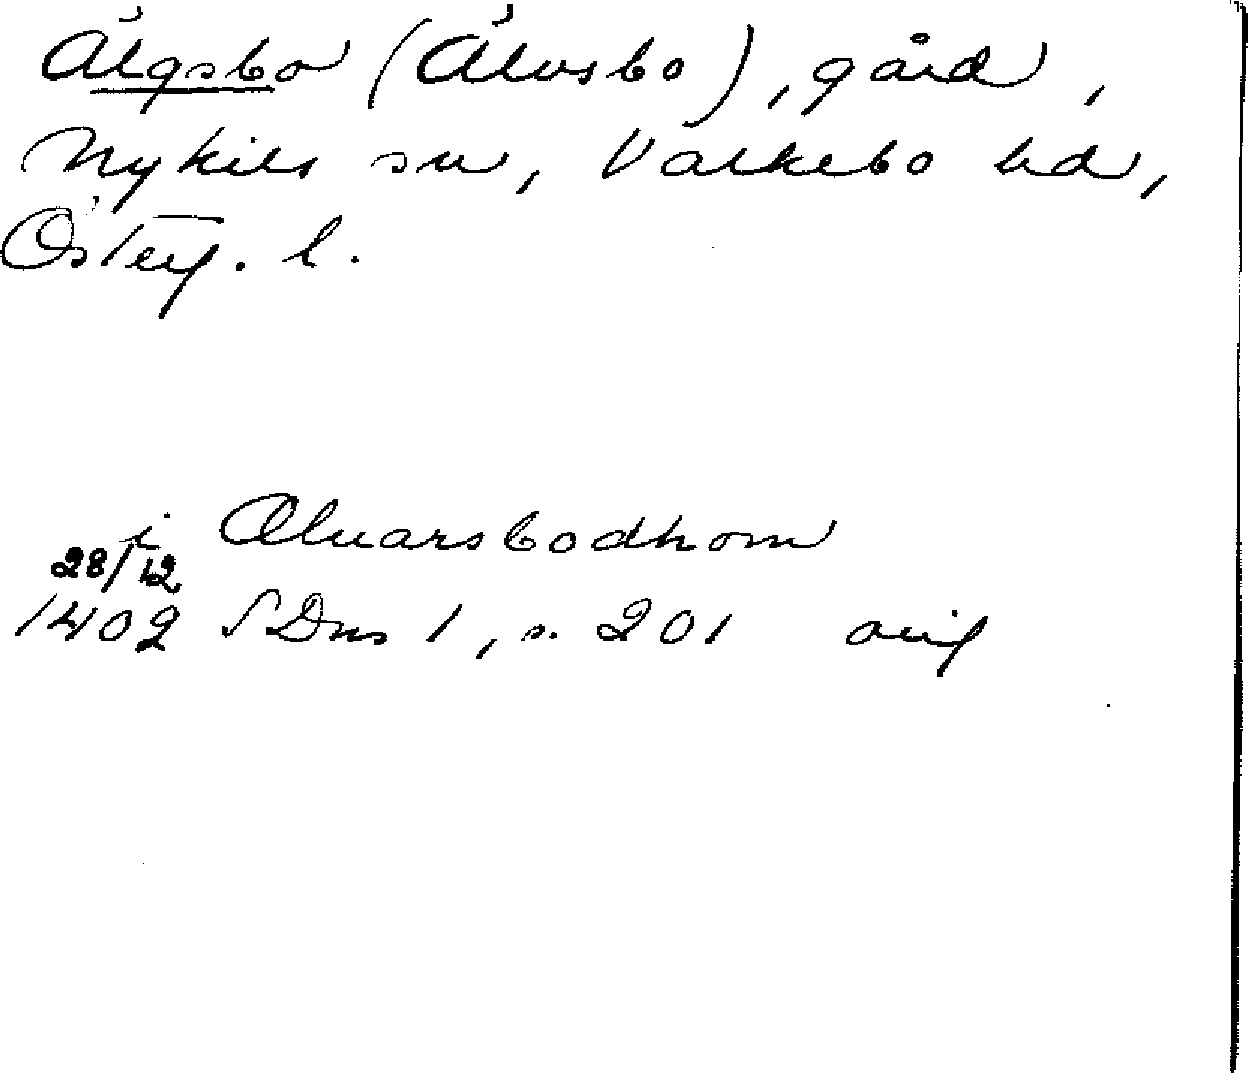 Älgsbo (Älvsbo), gård,
Nykils sn, Valkebo hd,
Österg. l.
i Aluarsbodhom
28/12
1402 SDns 1, s. 201 orig